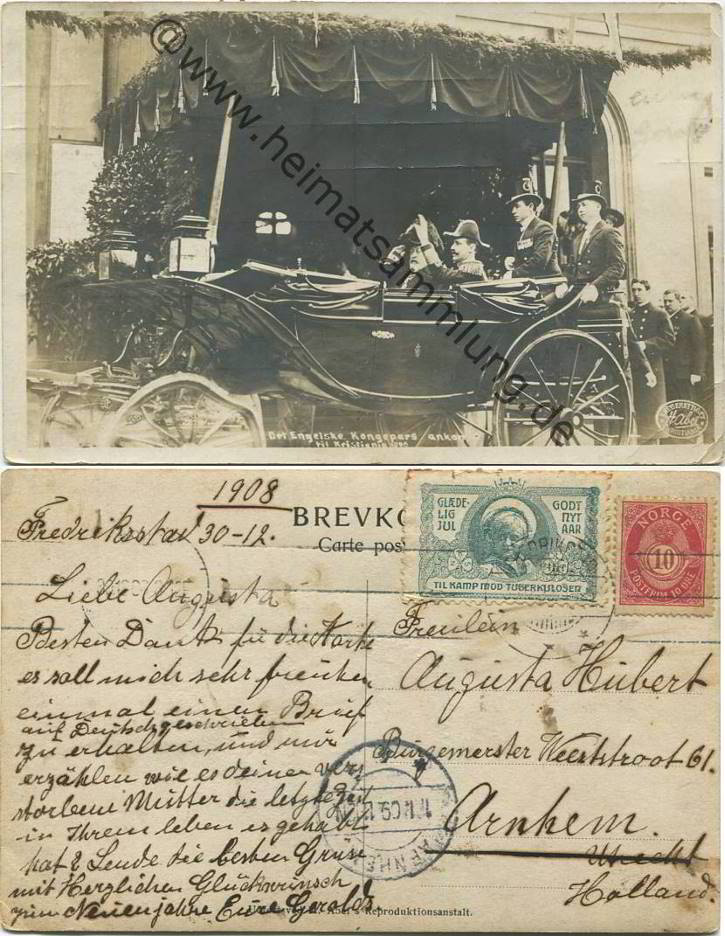 @www.heimatsammlung.de
Det Engelske Kongepars ankomst
til Kristiania
1908
Fredriksstad 30-12.
BREVKO
Carte pos
GLÆDE-
LIG
JUL
GODT
NYT
AAR
TIL KAMP MOD TUBERKULOSEN
NORGE
10
POSTFRIM. 10 ØRE
Liebe Augusta
Besten Dank für die Karte
es soll mich sehr freuken
einmal einen Brief
auf Deutsch geschrieben
zu erhalten, und mir
erzählen wie es deiner vers
storbene Mutter die letzte Zeit
in Ihrem leben es gehabt
hat & Sende die besten Grüse
mit Herzlichen Glückwunsch
zum Neuen jahre Eure Geralds.
Freulein
Augusta Hubert
Burgemerster Weertstroot 61.
Arnhem.
Utrecht
Holland.
Reproduktionsanstalt.